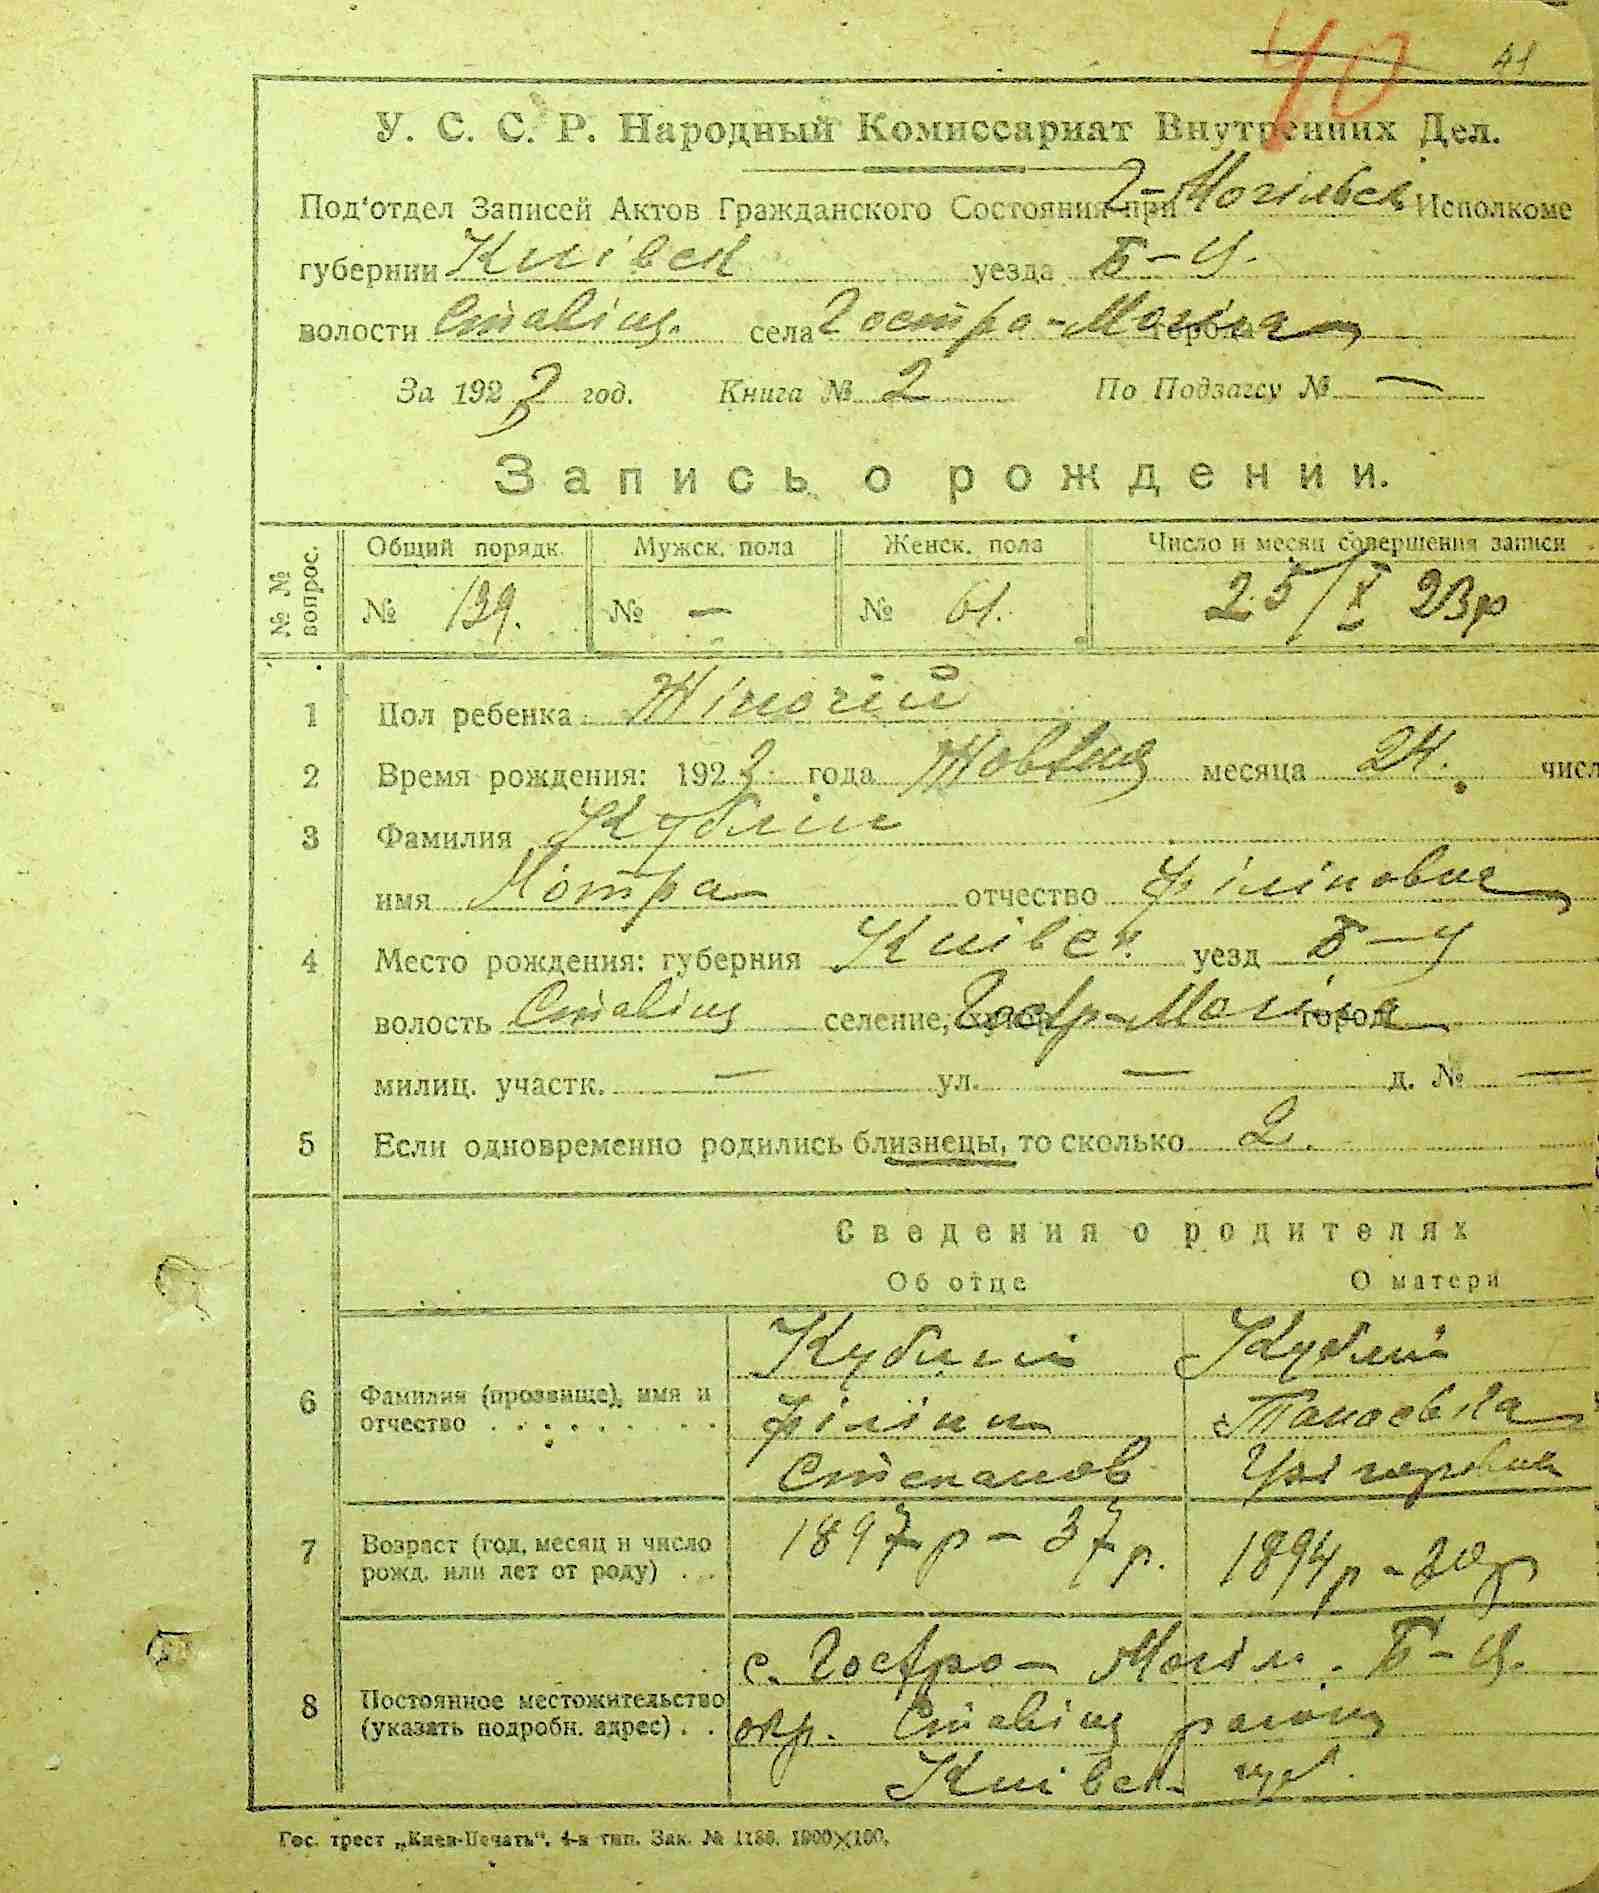 40 41
У. С. С. Р. Народный Комиссариат Внутренних Дел.
Под'отдел Записей Актов Гражданского Состояния при Г-Могільск. Исполкоме
губернии Київск уезда Б-Ц.
волости Ставищ. села Гостра-Могила города
За 1923 год. Книга № 2 По Подзагсу № —
Запись о рождении.
№ № вопрос. Общий порядк. Мужск. пола Женск. пола Число и месяц совершения записи
№ 139. № — № 61. 25/X 23р
1 Пол ребенка Жіночій
2 Время рождения: 1923 года Жовтня месяца 24. числ
3 Фамилия Кублій
имя Мотра отчество Філіповна
4 Место рождения: губерния Київск. уезд Б-Ц
волость Ставищ селение, хутор Гостр-Могила город
милиц. участк. — ул. — д. № —
5 Если одновременно родились близнецы, то сколько 2.
Сведения о родителях
Об отце О матери
Кублій Кублій
6 Фамилия (прозвище), имя и Філіпп
отчество . . . . . . . .
Степанов Григоровна
7 Возраст (год, месяц и число 1897р - 37р. 1894р -
рожд. или лет от роду) . .
с. Гостро- Могіли. Б-Ц.
8 Постоянное местожительство
(указать подробн. адрес) . . окр. Ставищ району
Київск губ.
Гос. трест „Киев-Печать“. 4-я тип. Зак. № 1186. 1900×100.